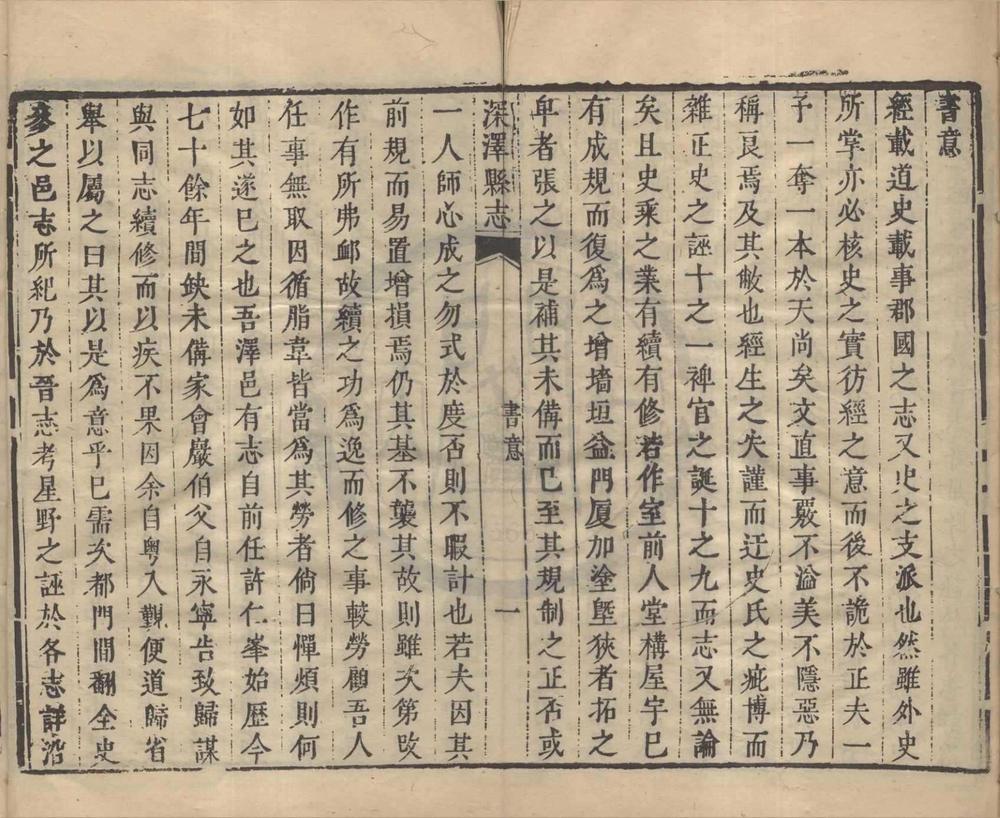 書意
經載道史載事郡國之志又史之支派也然雖外史
所掌亦必核史之實彷經之意而後不詭於正夫一
予一奪一本於天尚矣文直事覈不溢美不隱惡乃
稱良焉及其敝也經生之失謹而迂史氏之疵博而
雜正史之誣十之一稗官之誕十之九而志又無論
矣且史乘之業有續有修若作室前人堂構屋宇已
有成規而復爲之增墻垣益門厦加塗塈狹者拓之
卑者張之以是補其未備而已至其規制之正否或
深澤縣志
書意
一
一人師心成之勿式於度否則不暇計也若夫因其
前規而易置增損焉仍其基不襲其故則雖次第改
作有所弗邮故續之功爲逸而修之事較勞顧吾人
任事無取因循脂韋皆當爲其勞者倘曰憚煩則何
如其遂已之也吾澤邑有志自前任許仁峯始歷今
七十餘年間缺未備家會嚴伯父自永寧告致歸謀
與同志續修而以疾不果因余自粵入覲便道歸省
舉以屬之曰其以是爲意乎已需次都門間翻全史
參之邑志所紀乃於晉志考星野之誣於各志詳沿